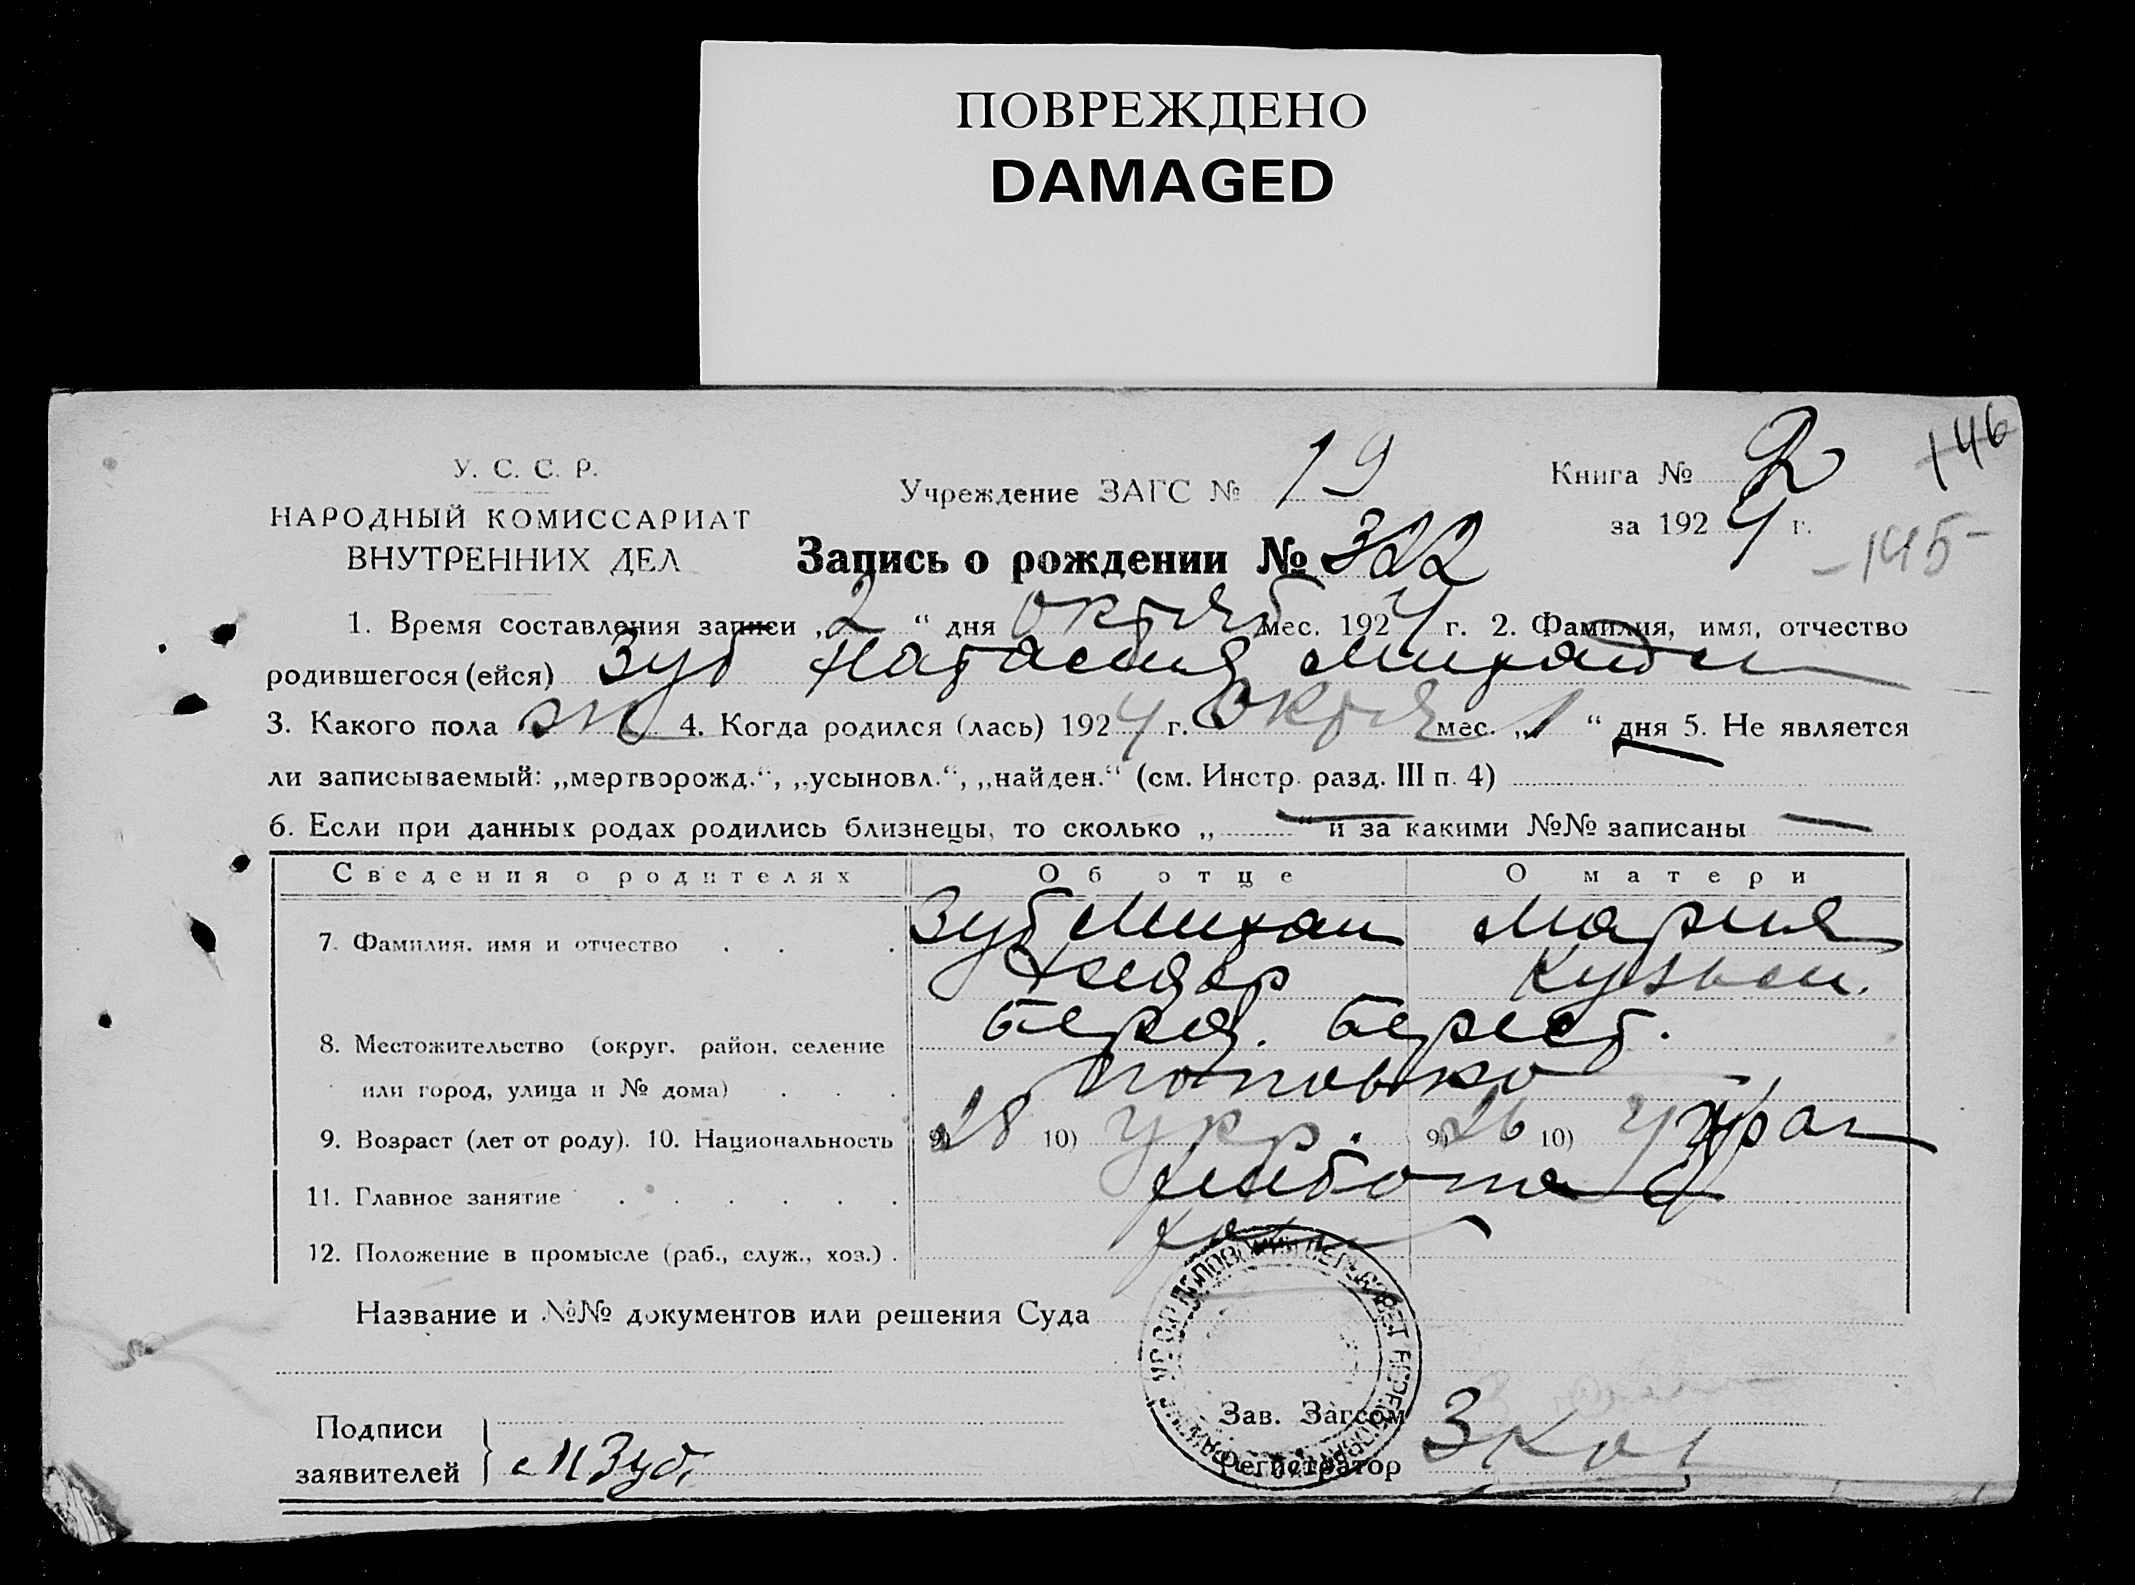 ПОВРЕЖДЕНО
DAMAGED
146
У. С. С. Р.
НАРОДНЫЙ КОМИССАРИАТ
ВНУТРЕННИХ ДЕЛ
Учреждение ЗАГС № 19
Книга № 2
за 1924 г.
-145-
Запись о рождении № 322
1. Время составления записи „2“ дня октяб мес. 1924 г. 2. Фамилия, имя, отчество
родившегося (ейся) Зуб Натасия Михайл
3. Какого пола ж 4. Когда родился (лась) 1924 г. Октя мес. „1“ дня 5. Не является
ли записываемый: „мертворожд.“, „усыновл.“, „найден.“ (см. Инстр. разд. III п. 4)
6. Если при данных родах родились близнецы, то сколько „ — “ и за какими №№ записаны —
Сведения о родителях Об отце О матери
7. Фамилия, имя и отчество Зуб Михаил Мария
Кузьм.
8. Местожительство (округ, район, селение Берд. Берест.
или город, улица и № дома)
9. Возраст (лет от роду). 10. Национальность 9) 28 10) Укр. 9) 26 10) Украи
11. Главное занятие
12. Положение в промысле (раб., служ., хоз.)
Название и №№ документов или решения Суда
Подписи
заявителей М Зуб.
Зав. Загсом
Регистратор